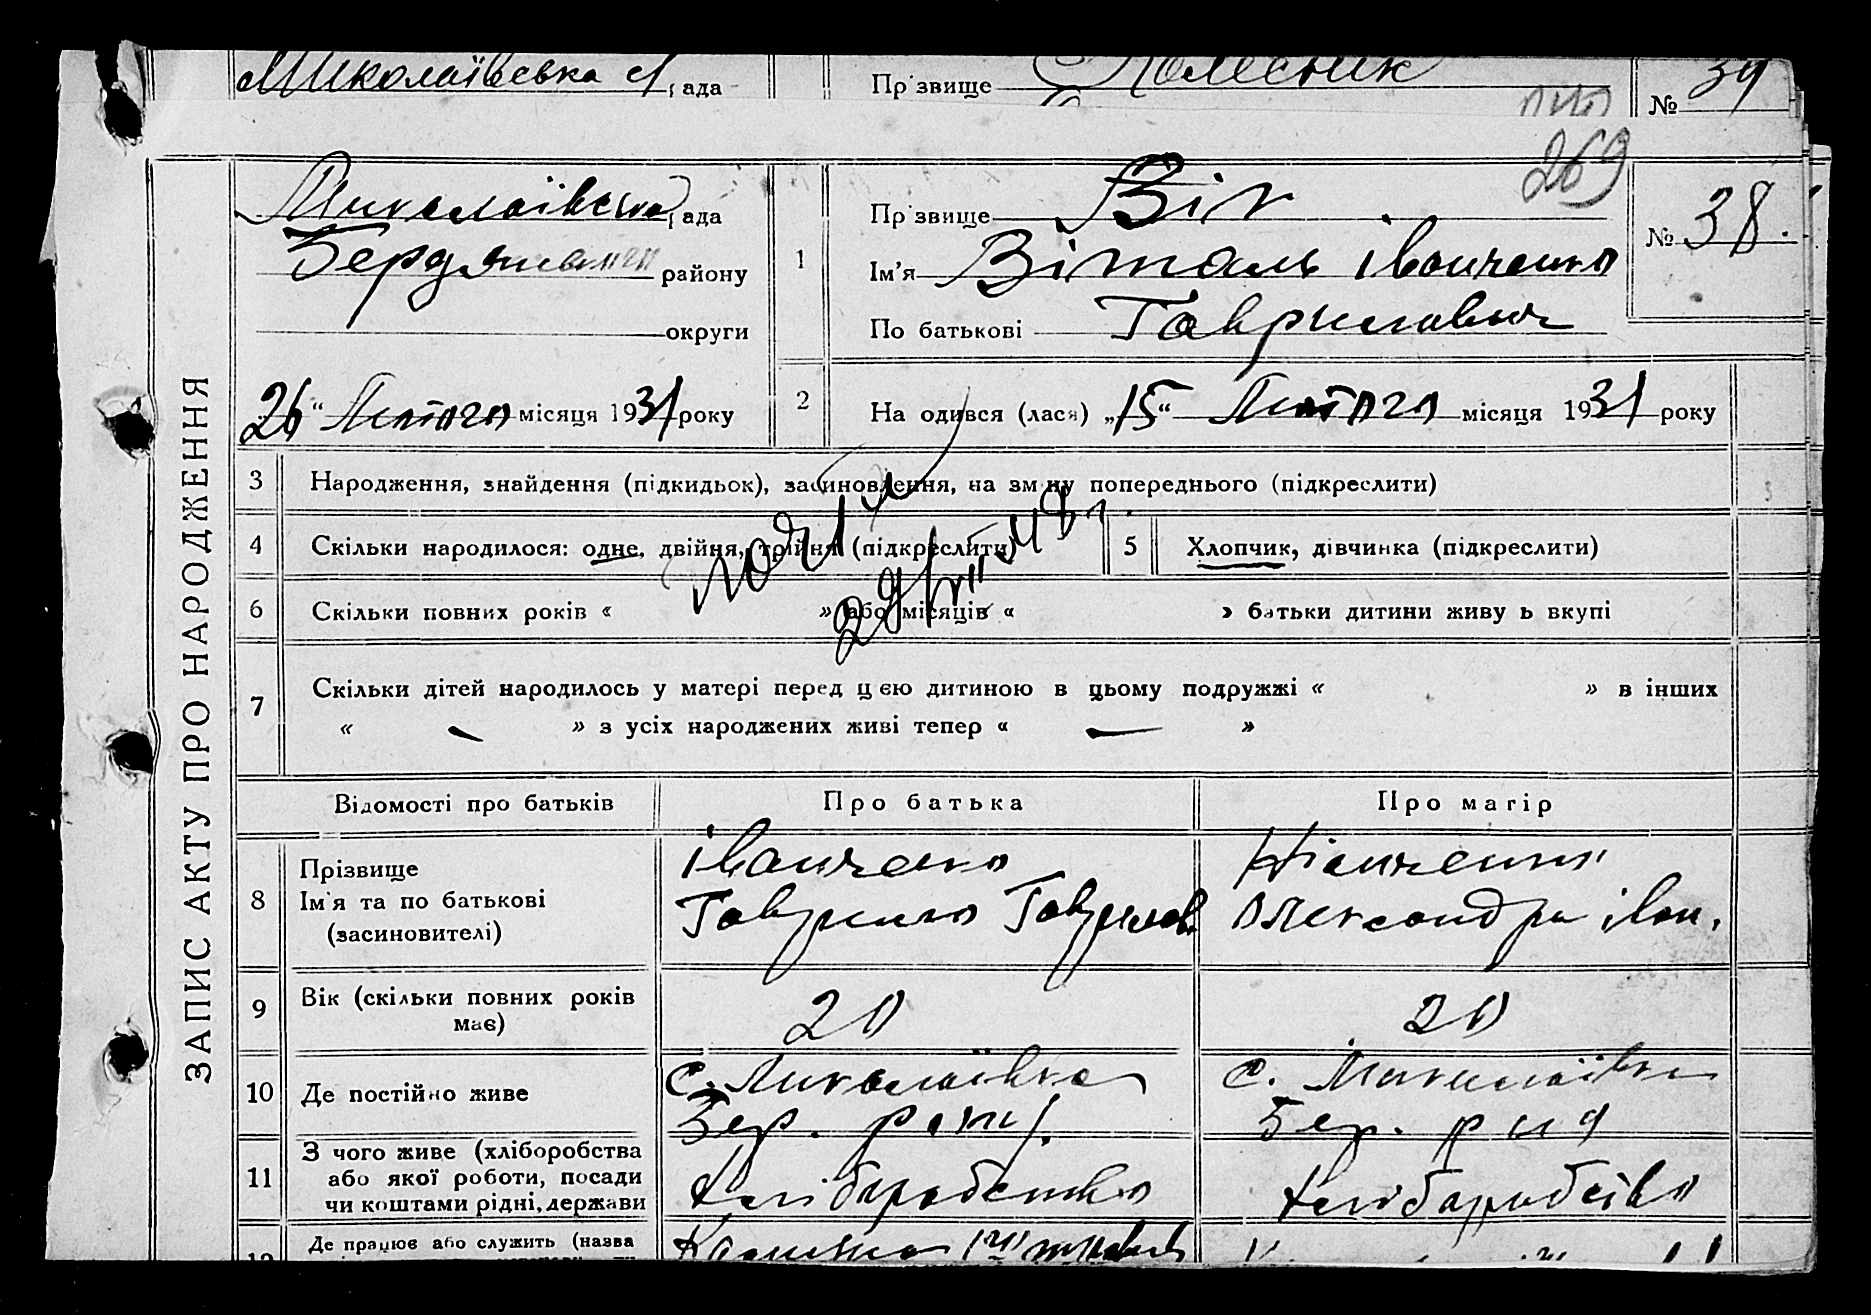 Миколаївська с/рада
Прізвище Колесник
№ 39
269
Миколаївська рада
Бердянського району
округи
1 Прізвище Вік
Ім'я Віталь Іванченко
По батькові Гаврилович
№ 38.
26 “ Лютого місяця 1931 року
2 На одився (лася) „15“ Лютого місяця 1931 року
ЗАПИС АКТУ ПРО НАРОДЖЕННЯ
3 Народження, знайдення (підкидьок), засиновлення, на зміну попереднього (підкреслити)
4 Скільки народилося: одне, двійня, трійня (підкреслити)
5 Хлопчик, дівчинка (підкреслити)
6 Скільки повних років « » або місяців « » батьки дитини живу ь вкупі
7 Скільки дітей народилось у матері перед цією дитиною в цьому подружжі « » в інших
« — » з усіх народжених живі тепер « — »
Відомості про батьків
Про батька
Про матір
8 Прізвище
Ім'я та по батькові
(засиновителі)
Іванченко
Гаврило Гаврилов.
Александра Іван.
9 Вік (скільки повних років
має)
20
20
10 Де постійно живе
с. Миколаївка
Бер. району
с. Миколаївка
Бер. рну
11 З чого живе (хліборобства
або якої роботи, посади
чи коштами рідні, держави
хліборобство
хліборобство
Де працює або служить (назва